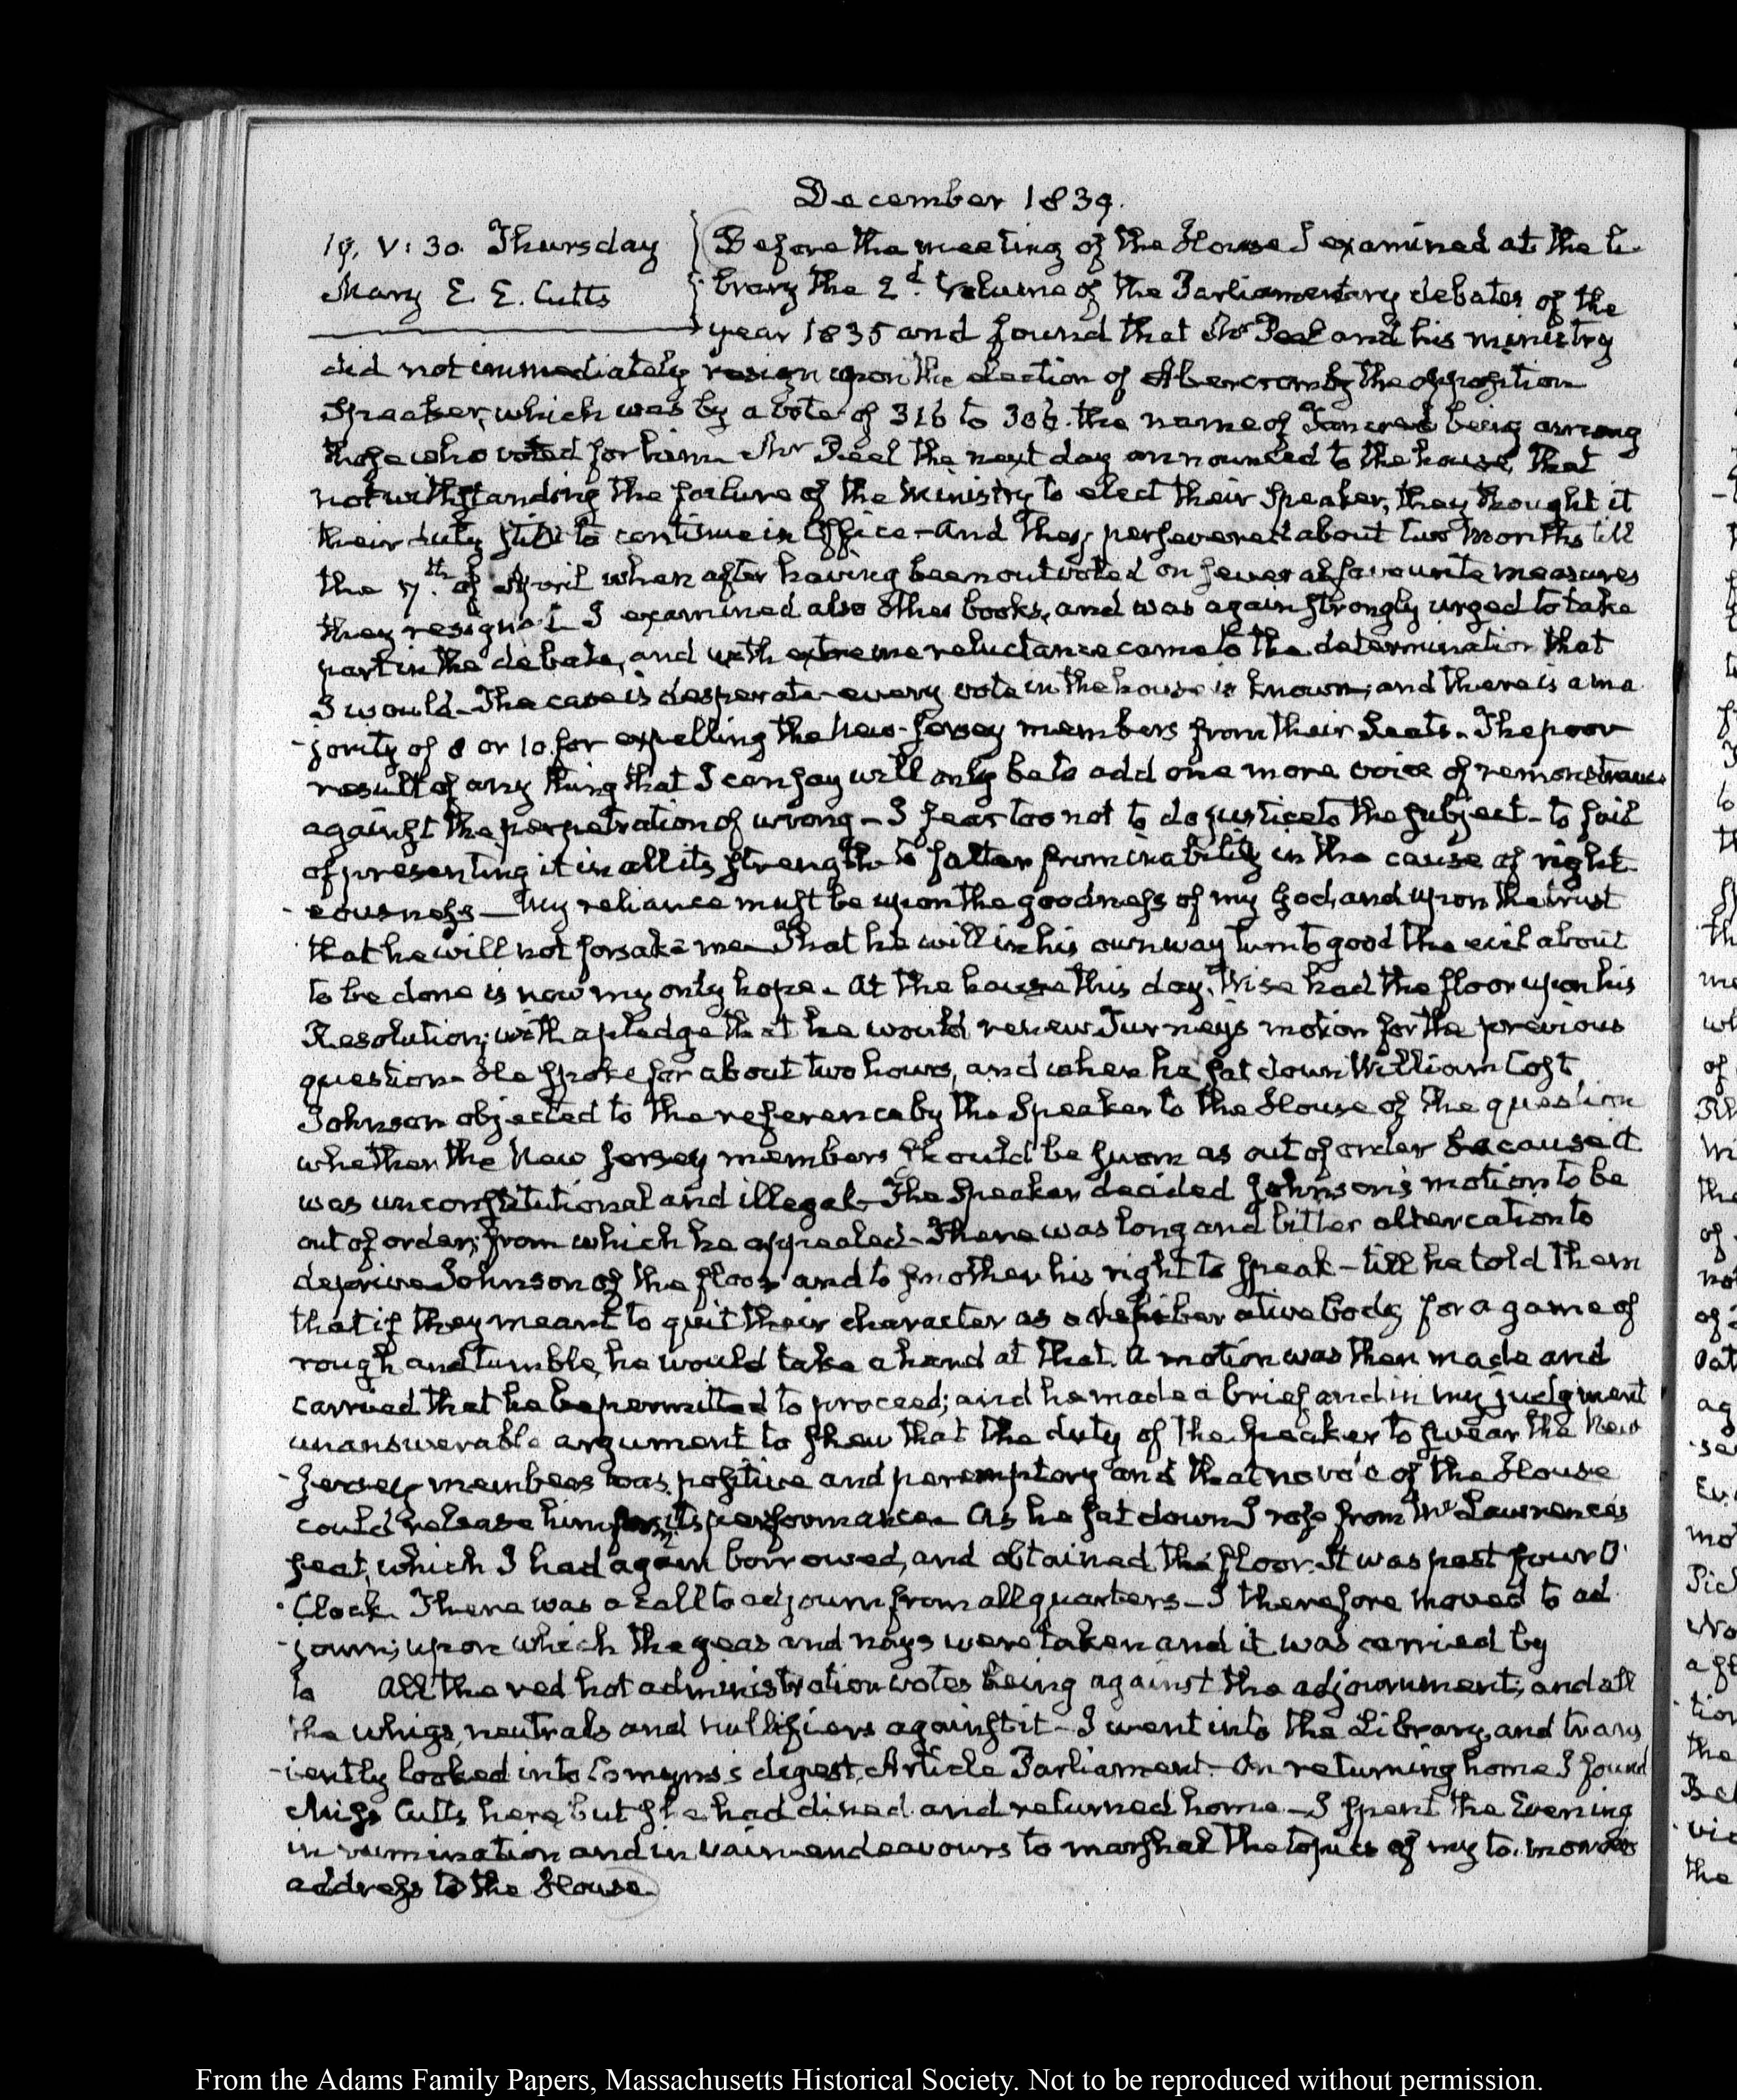 December 1839.
19. V: 30. Thursday
Mary E E. Cutts
Before the meeting of the House I examined at the li-
brary the 2d. volume of the Parliamentary debates of the
year 1835 and found that Mr Peel and his ministry
did not immediately resign upon the election of Abercromby the opposition
Speaker, which was by a vote of 316 to 306. the name of Tancred being among
those who voted for him. Mr Peel the next day announced to the house, that
notwithstanding the failure of the Ministry to elect their Speaker, they thought it
their duty still to continue in Office – and they persevered about two months till
the 7th. of April when after having been outvoted on several favourite measures
they resigned – I examined also other books, and was again strongly urged to take
part in the debate, and with extreme reluctance came to the determination that
I would – The case is desperate – every vote in the house is known; and there is a ma
-jority of 8 or 10. for expelling the New-Jersey members from their Seats. The poor
result of any thing that I can say will only be to add one more voice of remonstrance
against the perpetration of wrong – I fear too not to do justice to the subject – to fail
of presenting it in all its strength – to falter from inability in the cause of right
-eousness – My reliance must be upon the goodness of my God, and upon the trust
that he will not forsake me – That he will in his own way turn to good the evil about
to be done is now my only hope. At the house this day, Wise had the floor upon his
Resolution; with a pledge that he would renew Turney's motion for the previous
question – He spoke for about two hours, and when he sat down William Cost
Johnson objected to the reference by the Speaker to the House of the question
whether the New Jersey members should be sworn as out of order because it
was unconstitutional and illegal – The Speaker decided Johnson's motion to be
out of order; from which he appealed – There was long and bitter altercation to
deprive Johnson of the floor and to smother his right to speak – till he told them
that if they meant to quit their character as a deliberative body for a game of
rough and tumble, he would take a hand at that. A motion was then made and
carried that he be permitted to proceed; and he made a brief and in my judgment
unanswerable argument to shew that the duty of the Speaker to swear the New
-Jersey members was positive and peremptory and that no vote of the House
could release him from its performance. As he sat down I rose from Mr Lawrence's
seat, which I had again borrowed, and obtained the floor. It was past four O'
Clock. There was a call to adjourn from all quarters – I therefore moved to ad
-journ; upon which the yeas and nays were taken and it was carried by
to     All the red hot administration votes being against the adjournment; and all
the whigs, neutrals and nullifiers against it – I went into the Library, and trans
-iently looked into Comyns's digest, Article Parliament – On returning home I found
Miss Cutts here, but she had dined and returned home – I spent the Evening
in rumination and in vain endeavours to marshal the topics of my to-morrow's
address to the House.
From the Adams Family Papers, Massachusetts Historical Society. Not to be reproduced without permission.